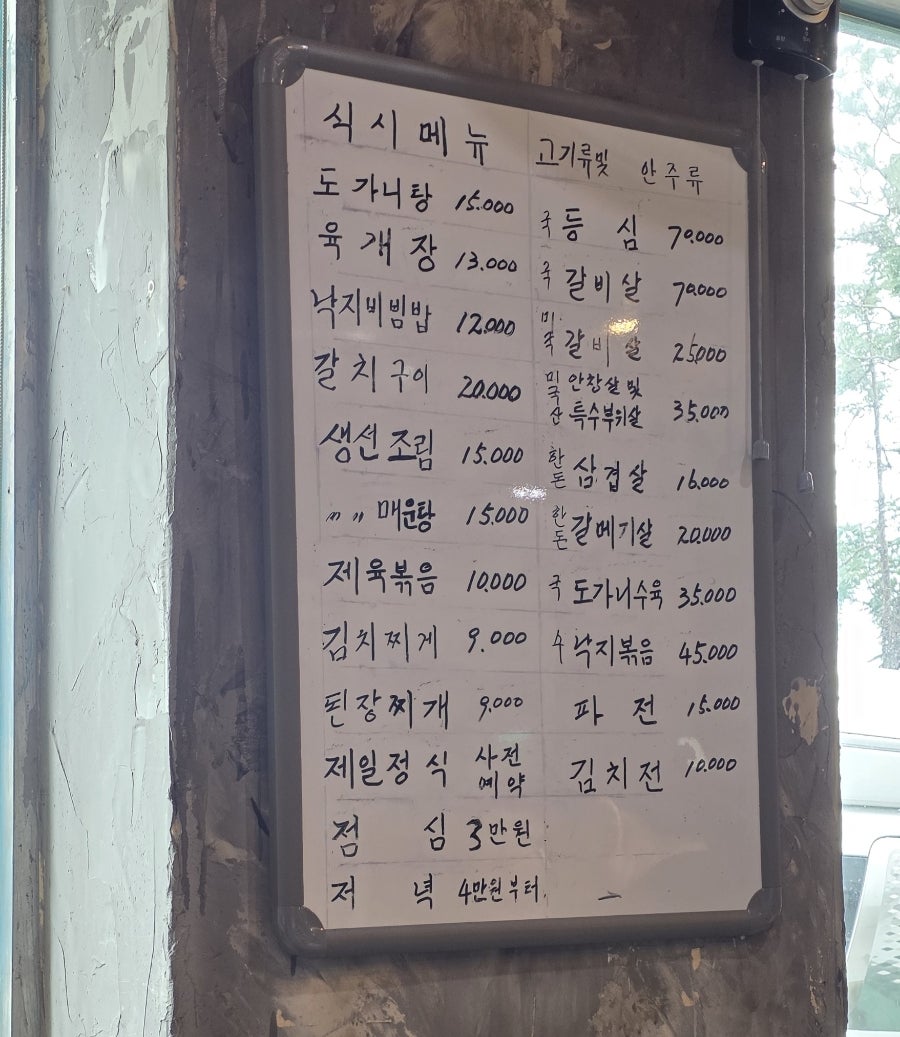 식시메뉴
도가니탕 15.000
육개장 13.000
낙지비빔밥 12.000
갈치구이 20.000
생선조림 15.000
〃 〃 매운탕 15.000
제육볶음 10.000
김치찌게 9.000
된장찌개 9.000
제일정식 사전예약
점심 3만원
저녁 4만원부터.
고기류및 안주류
국 등심 70.000
국 갈비살 70.000
미국 갈비살 25.000
미국산 안창살 및
특수부위살 35.000
한돈 삼겹살 16.000
한돈 갈메기살 20.000
국 도가니수육 35.000
수 낙지볶음 45.000
파전 15.000
김치전 10.000